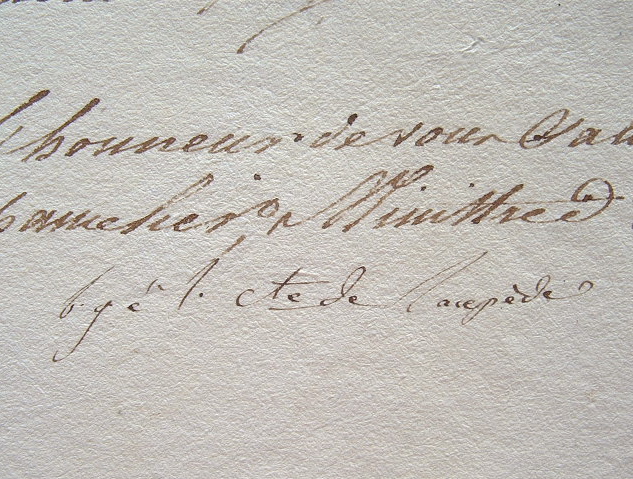 l'honneur de vous Salu
Chancelier, Ministre d
b. g. é. l. Cte de Lacepède